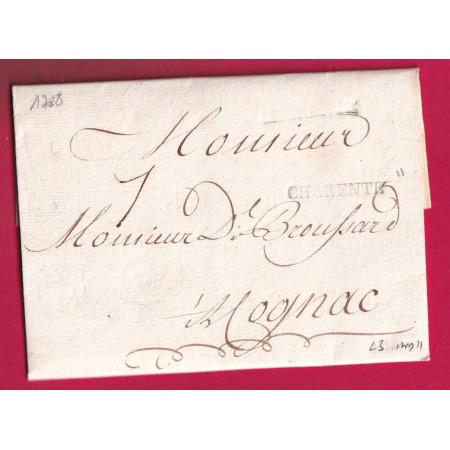 1788
Monsieur
7
CHARENTE
Monsieur D.t Broussard
à Cognac